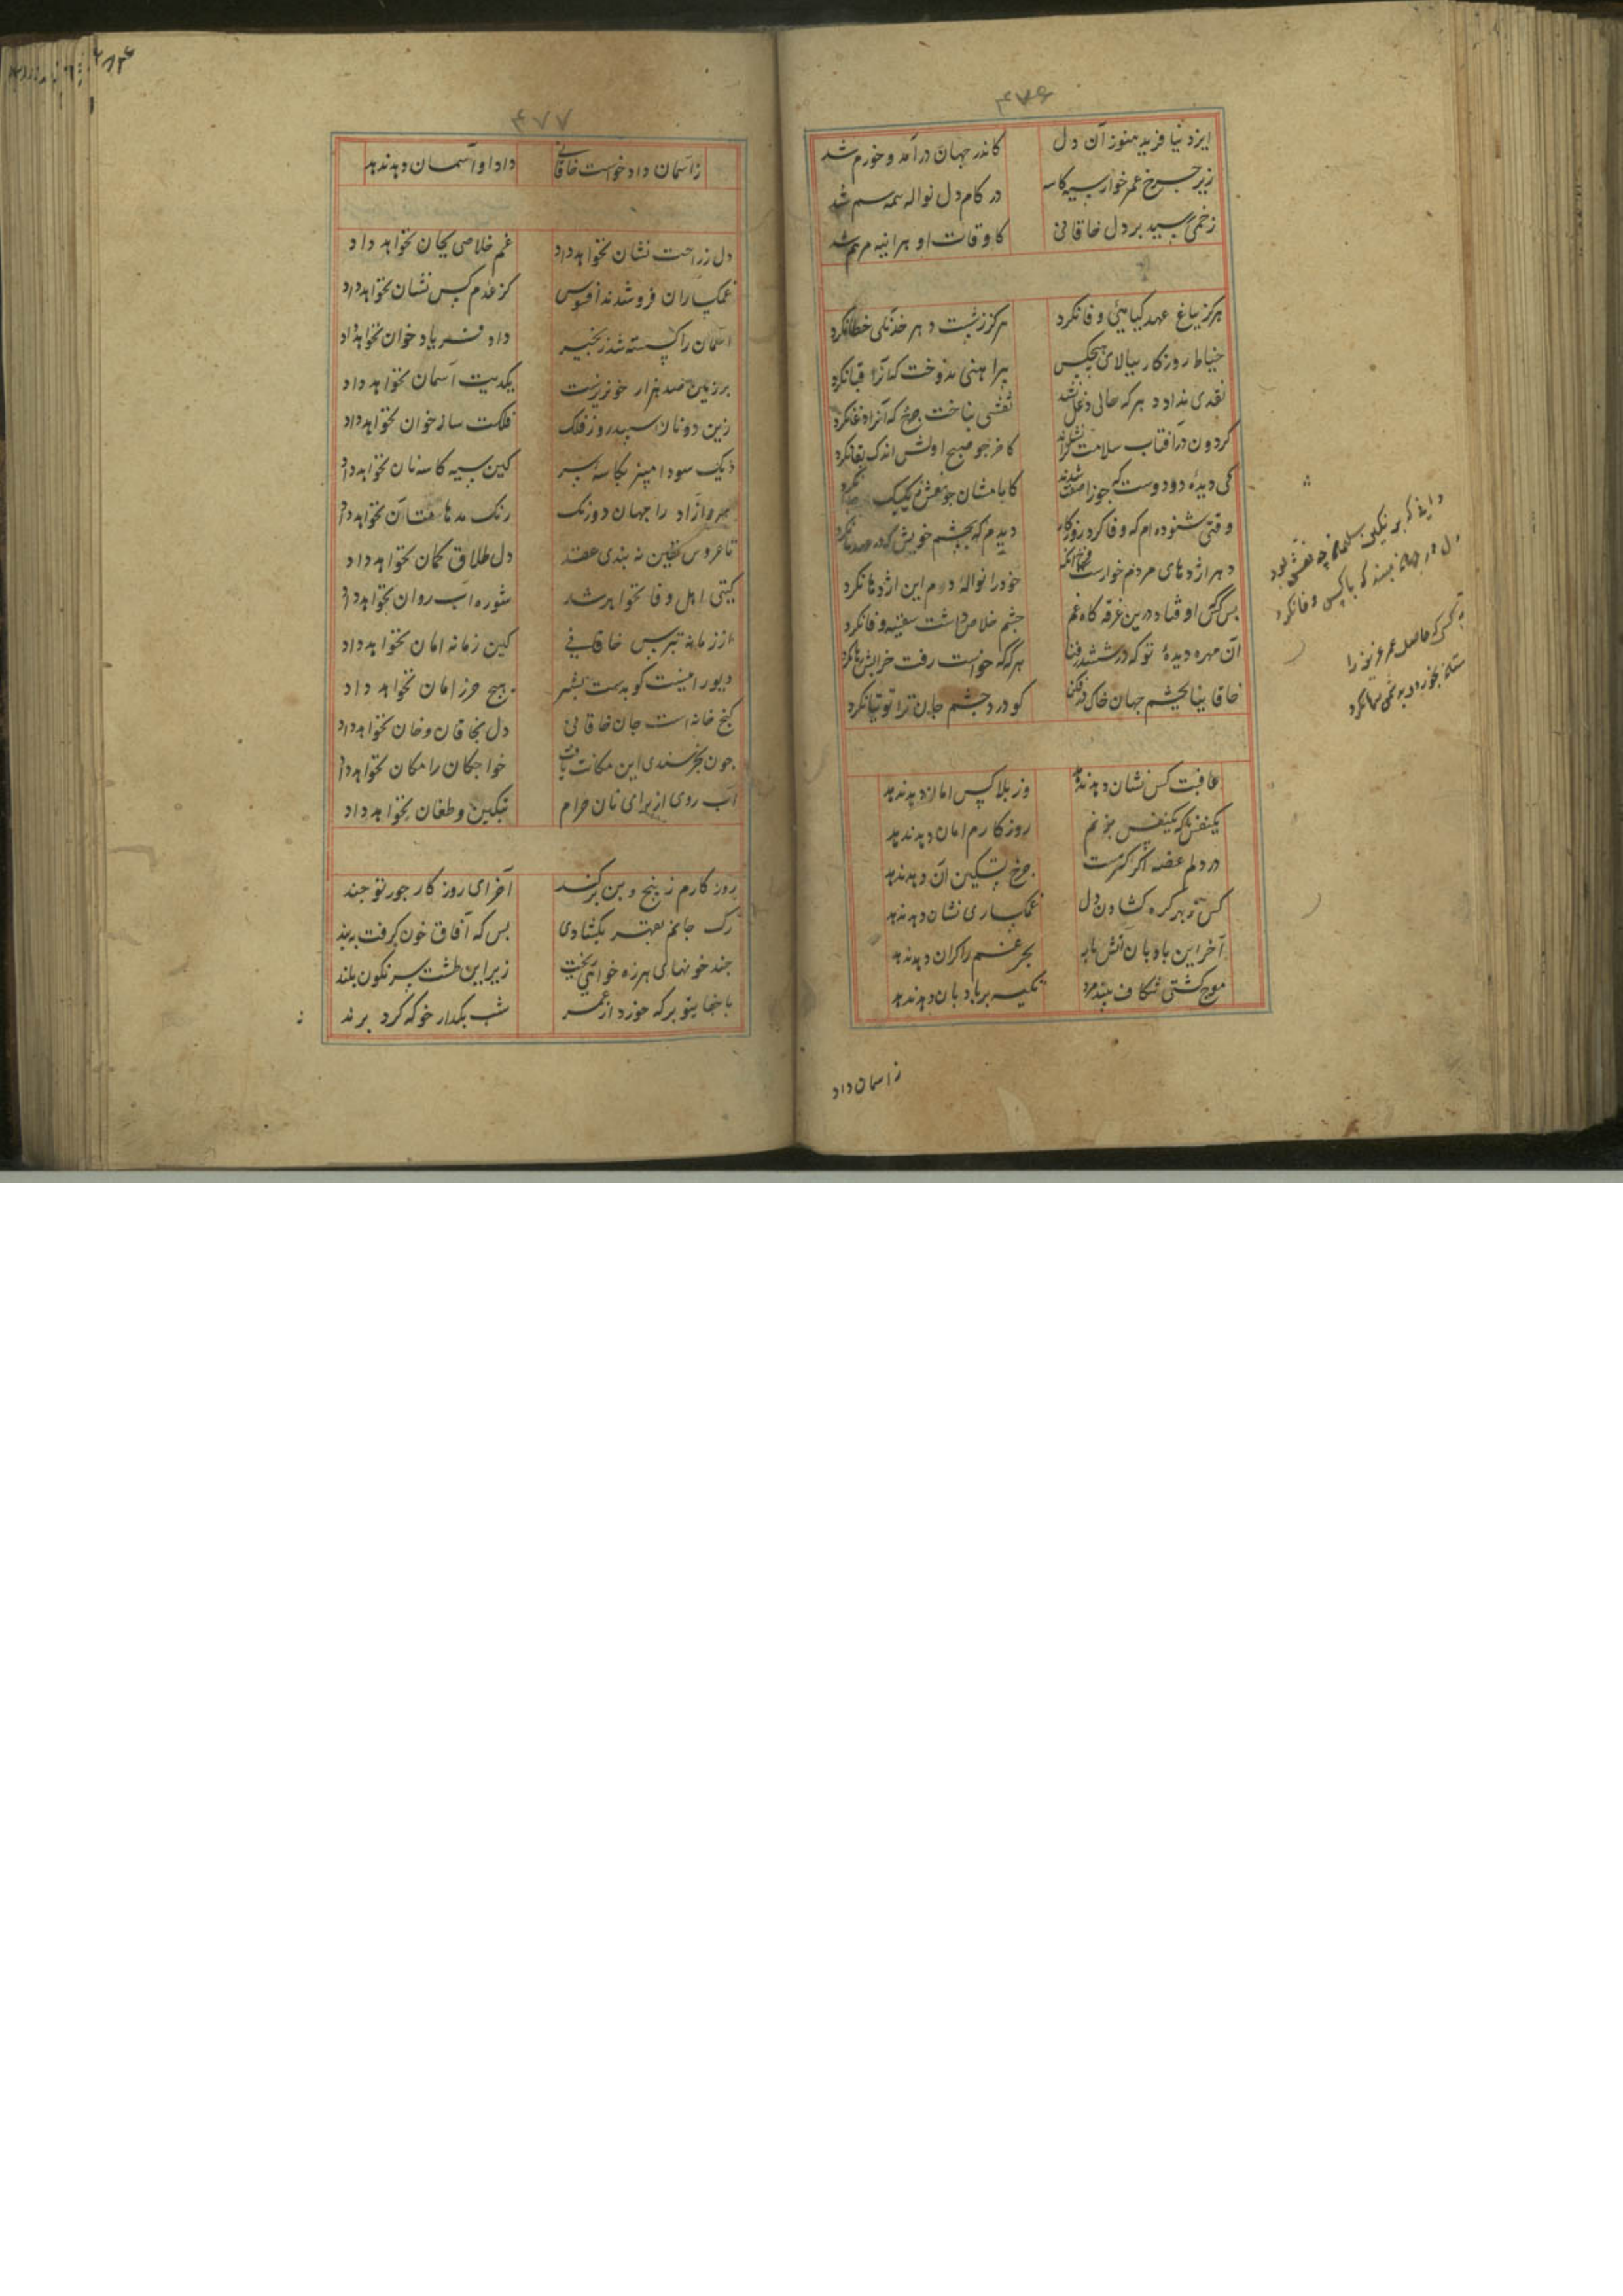 ۴۷۶
ایزد نیافرید هنوز آن دل
کاندر جهان درآمد و خورم شد
زیر چرخ عمر خوار سیه کاسه
در کام دل نواله همه سم شد
زخمی رسید بر دل خاقانی
کاوقات او بهرانیه مرهم شد
هرگز بباغ عهد گیاهی وفا نکرد
هرگز ز شست دهر خدنگی خطا نکرد
خیاط روزگار ببالای هیچکس
پیراهنی ندوخت که آنرا قبا نکرد
نقدی نداد دهر که حالی دغل نشد
نقشی نباخت چرخ که آنرا دغا نکرد
گردون در آفتاب سلامت کرا نشاند
کاخر چو صبح اولش اندک بقا نکرد
کی دیده دو دوست که جوزا صفت شدند
کایامشان چو نعش یکیک جدا نکرد
وقتی شنوده‌ام که وفا کرد روزگار
دیدم که بچشم خویش که در عهد ما نکرد
دهر اژدهای مردم خوارست فرخ آنک
خود را نواله دم این اژدها نکرد
بس کس اوفتاد درین غرقه گاه غم
چشم خلاص داشت سفینه وفا نکرد
آن مهره دیده تو که در ششدر فنا
هرگه که خواست رفت خرابش رها نکرد
خاقانیا بچشم جهان خاک در فکن
کو درد چشم جان ترا توتیا نکرد
عافیت کس نشان دهد ندهد
وز بلا کس امان دهد ندهد
یکنفس تا که یکنفس بزنم
روزگارم امان دهد ندهد
در دلم غصه اگر گرهست
چرخ تسکین آن دهد ندهد
کس تو بهر گره گشادن دل
غمگساری نشان دهد ندهد
آخر این بادبان آتش بار
بحر غم را کران دهد ندهد
موج کشتی شکاف بیند مرد
تکیه بر بادبان دهد ندهد
زاسمان داد
۴۷۷
زآسمان داد خواست خاقانی
داد او آسمان دهد ندهد
دل ز راحت نشان نخواهد داد
غم خلاصی بجان نخواهد داد
غمگساران فرو شدند افسوس
کز عدم کس نشان نخواهد داد
آسمان را گسسته شد زنجیر
داد فریاد خوان نخواهد داد
بر زمین صد هزار خونریزست
یکدیت آسمان نخواهد داد
زین دو نان سپید روز فلک
فلکت ساز خوان نخواهد داد
دیک سودا مپز بکاسه سر
کین سیه کاسه نان نخواهد داد
مرد آزاد را جهان دورنگ
رنگ مدهامتان نخواهد داد
تا عروس یقین نه بندی عقد
دل طلاق گمان نخواهد داد
گیتی اهل وفا نخواهد شد
شوره آب روان نخواهد داد
از زمانه بترس خاقانی
کین زمانه امان نخواهد داد
دیو را نیست کو بدست بشر
هیچ حرز امان نخواهد داد
گنج خانه است جان خاقانی
دل بخاقان و خان نخواهد داد
چون بخرسندی این مکانت یافت
خواجگان را مکان نخواهد داد
آب روی از برای نان حرام
بتکین و طغان نخواهد داد
روزگارم ز بیخ و بن برکند
آخر ای روزگار جور تو چند
رگ جانم بقهر بگشادی
بس که آفاق خون گرفت ببند
چند خونهای هرزه خواهی ریخت
زیر این طشت سرنگون بلند
با جفا بتو بر که خورد از عمر
شب بگذار خو که کرد برند